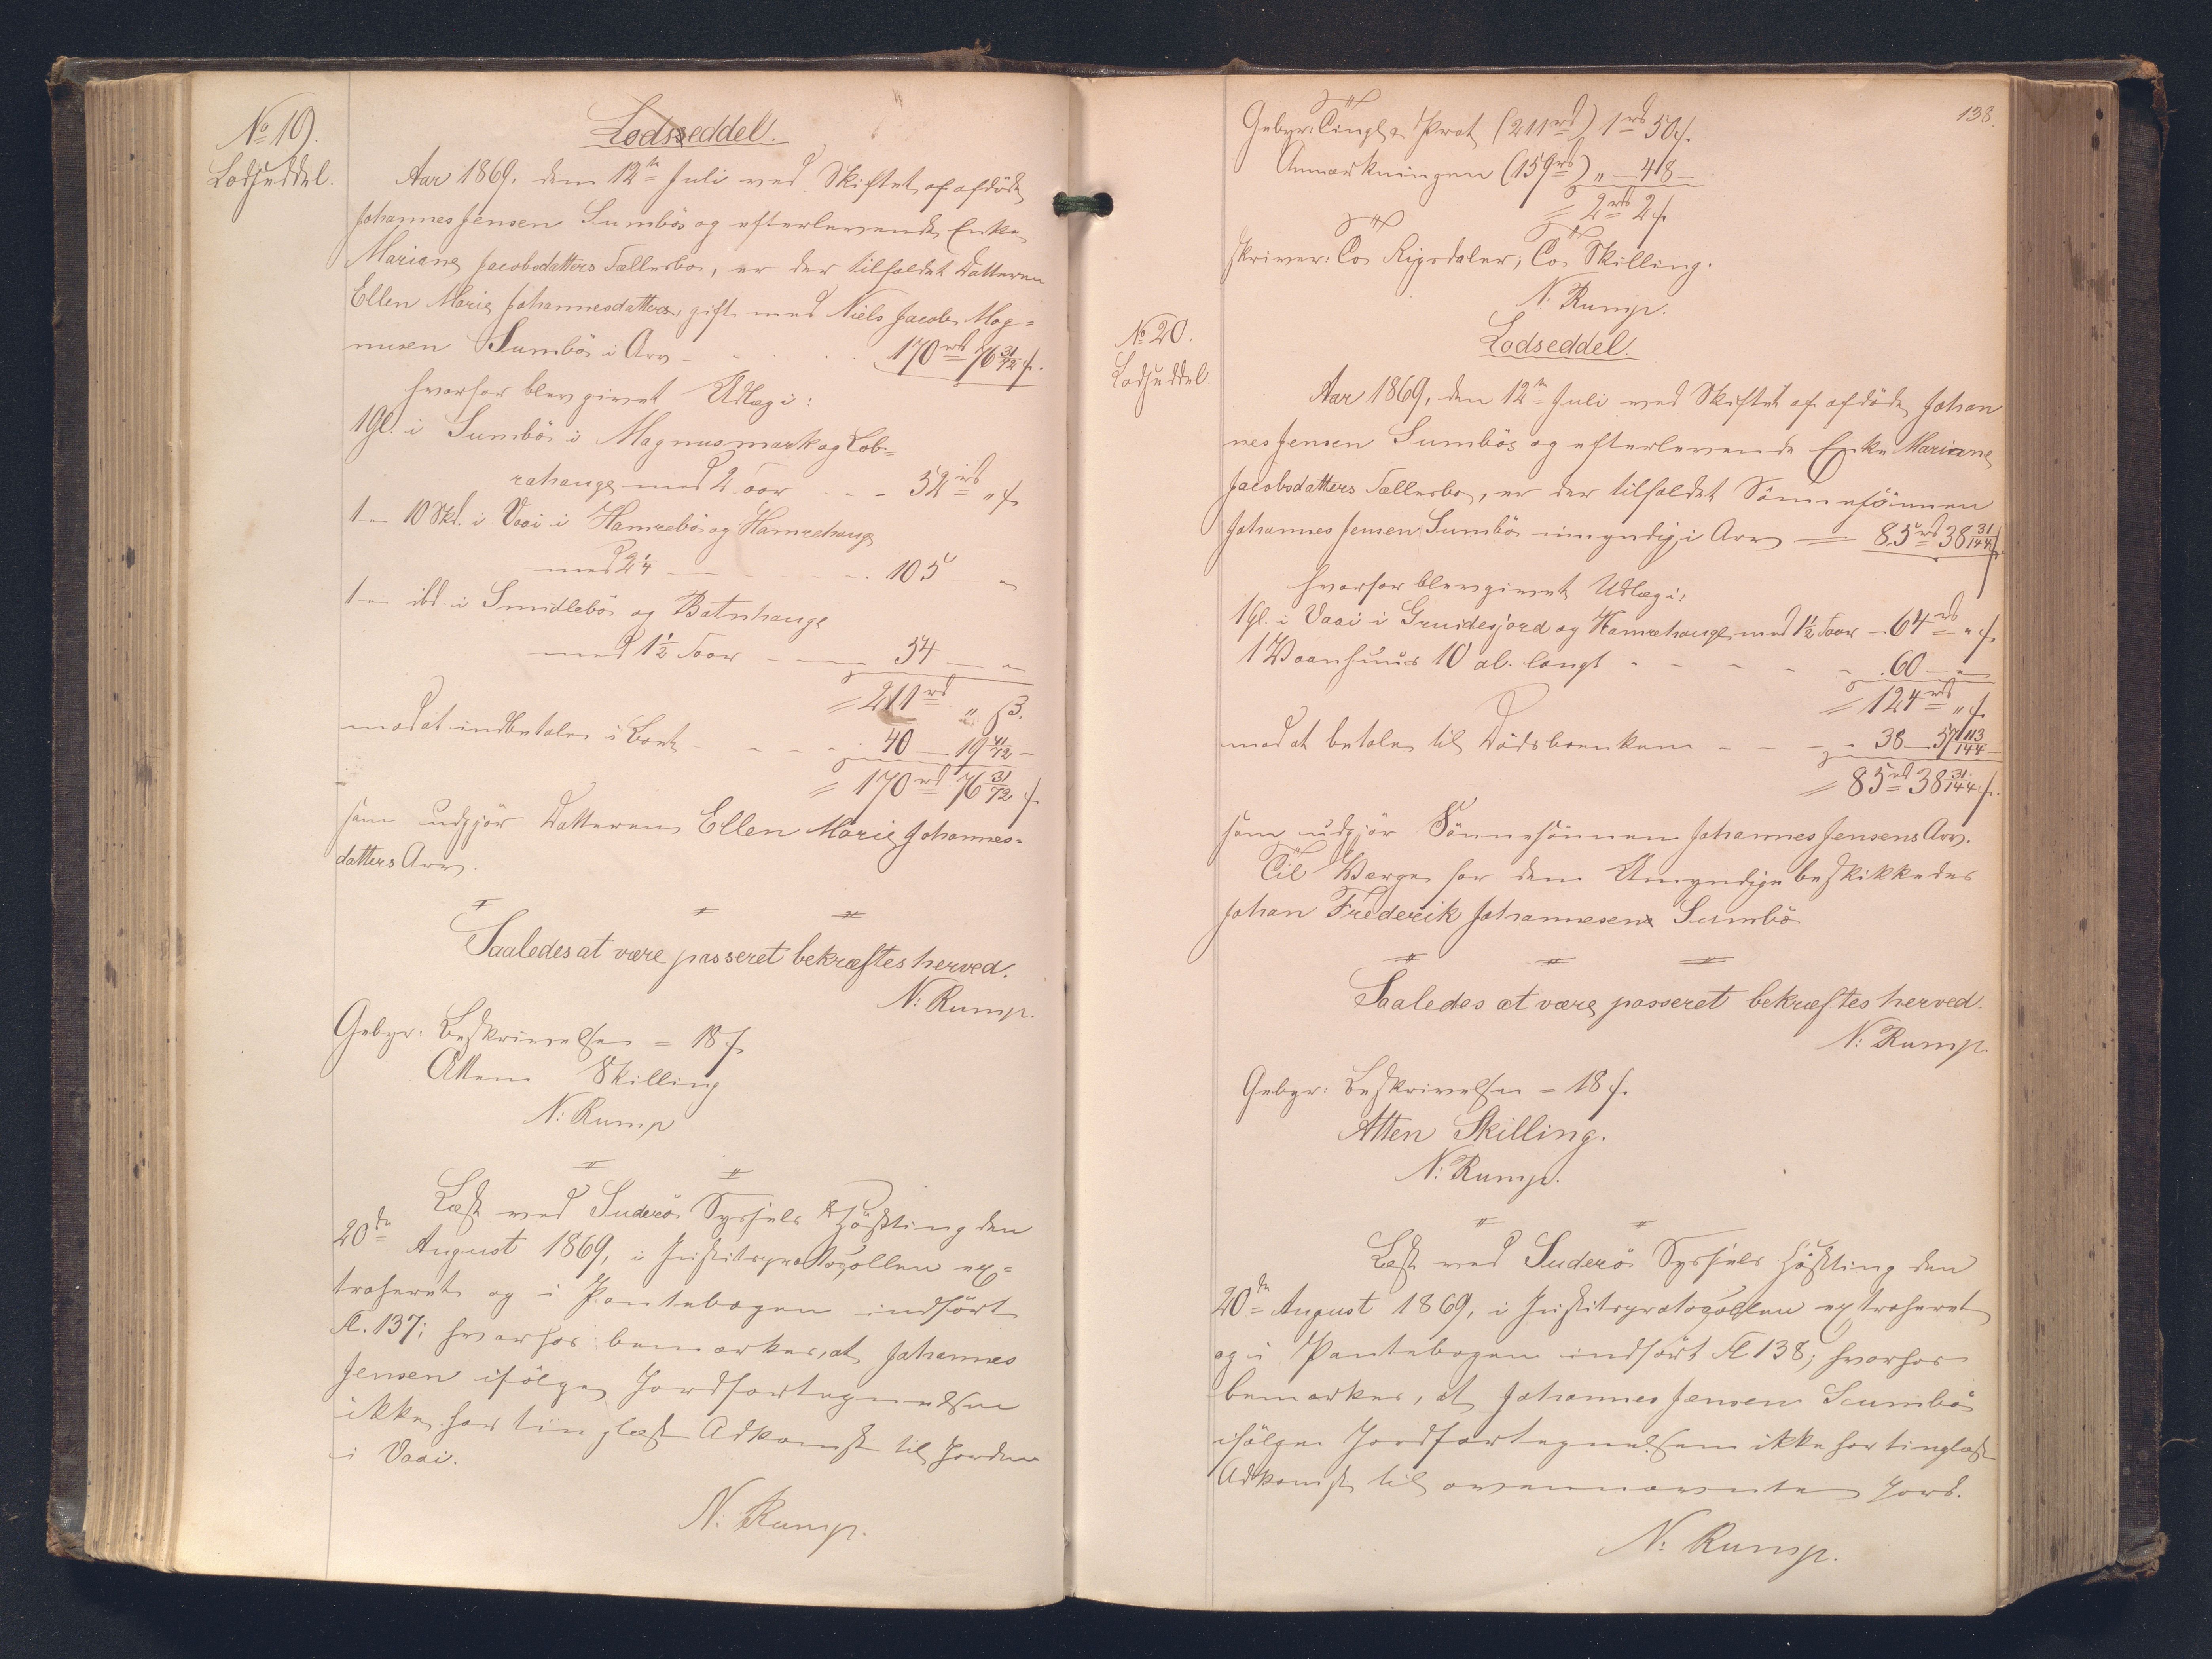 No 19.
Lodseddel.
Lodsseddel.
Aar 1869, den 12te Juli ved Skiftet af afdöde
Johannes Jensen Sumbös og efterlevende Enke
Mariane Jacobsdatters Fællesbo, er der tilfaldet Datteren
Ellen Marie Johannesdatter, gift med Niels Jacob Mag=
nusen Sumbö i Arv - - - 170 rd 76 31/72 ß.
hvorfor blev givet Udlæg i:
1 Gl. i Sumbö i Magnusmark og Lob=
rahauge med 2 Foor - - - 52 rd „ ß
1 - 10 Skd. i Vaai i Hamrebö og Hamrehauge
med 2 1/4 - - - 105 „
1 - ibd. i Smidlebö og Botnhauge
med 1 1/2 Foor - - - 54 - „
= 211 rd „ ß.
mod at indbetale i Boet - - - 40 - 19 41/72 -
= 170 rd 76 31/72 ß
som udgjör Datteren Ellen Marie Johannes=
datters Arv.
Saaledes at være passeret bekræftes herved.
N: Rump.
Gebyr: Beskrivelsen = 18 ß
Atten Skilling
N: Rump
Læst ved Suderö Syssels Höstting den
20de August 1869, i Justitsprotokollen ex=
traheret og i Pantebogen indfört
fl. 137; hvorhos bemærkes, at Johannes
Jensen ifölge Jordfortegnelsen
ikke har tinglæst Adkomst til Jorden
i Vaai.
N: Rump.
138.
Gebyr: Tingl. & Prot (211 rd) 1 rd 50 ß.
Anmærkningen (159 rd) „ - 48 -
= 2 rd 2 ß
skriver: To Rigsdaler, To Skilling.
N: Rump.
No 20.
Lodseddel.
Lodseddel.
Aar 1869, den 12te Juli ved Skiftet af afdöde Johan
nes Jensen Sumbös og efterlevende Enke Mariane
Jacobsdatters Fællesbo, er der tilfaldet Sönnesönnen
Johannes Jensen Sumbö umyndig, i Arv - 85 rd 38 31/144 ß
hvorfor blev givet Udlæg i:
1 Gl. i Vaai i Gruidesjord og Hamrehauge med 1 1/2 Foor - 64 rd „ ß
1 Vaanhuus 10 al. langt - - - 60 - „
= 124 rd „ ß
mod at betale til Dödsboenken - - - 38 - 57 113/144 -
= 85 rd 38 31/144 ß.
som udgjör Sönnesönnen Johannes Jensens Arv.
Til Værge for den Umyndige beskikkedes
Johan Frederik Johannesen Sumbö
Saaledes at være passeret bekræftes herved.
N: Rump
Gebyr: Beskrivelsen = 18 ß.
Atten Skilling.
N: Rump.
Læst ved Suderö Syssels Höstting den
20de August 1869, i Justitsprotokollen extraheret
og i Pantebogen indfört fl 138; hvorhos
bemærkes, at Johannes Jensen Sumbö
ifölge Jordfortegnelsen ikke har tinglæst
Adkomst til ovennævnte Jord.
N: Rump.